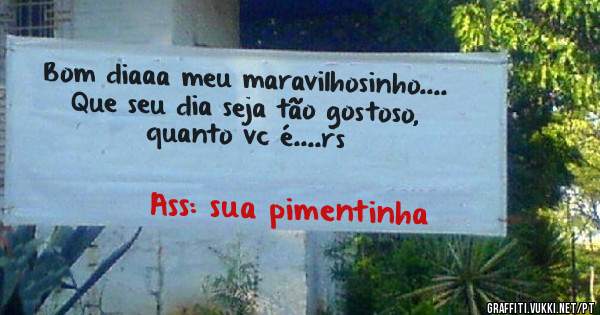 Bom diaaa meu maravilhosinho....
Que seu dia seja tão gostoso,
quanto vc é....rs
Ass: sua pimentinha
GRAFFITI.VUKKI.NET/PT